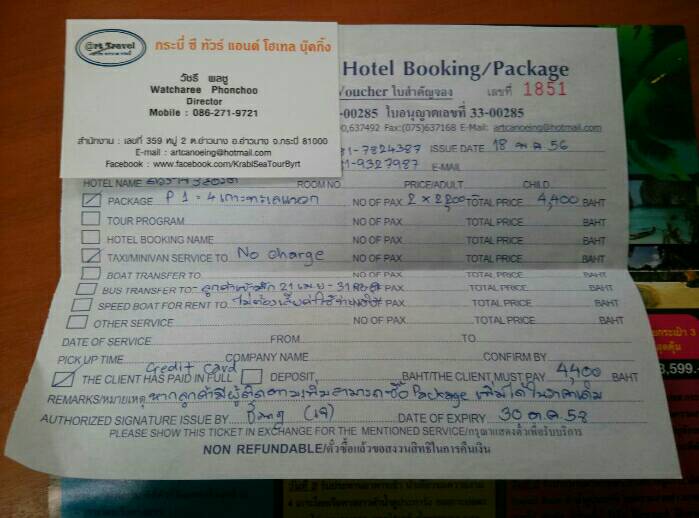 @rt Travel
กระบี่ ซี ทัวร์ แอนด์ โฮเทล บุ๊คกิ้ง
วัชรี พลชู
Watcharee Phonchoo
Director
Mobile : 086-271-9721
สำนักงาน : เลขที่ 359 หมู่ 2 ต.อ่าวนาง อ.อ่าวนาง จ.กระบี่ 81000
E-mail : artcanoeing@hotmail.com
Facebook : www.facebook.com/KrabiSeaTourByrt
Hotel Booking/Package
Voucher ใบสำคัญจอง เลขที่ 1851
-00285 ใบอนุญาตเลขที่ 33-00285
0,637492 Fax:(075)637168 E-Mail: artcanoeing@hotmail.com
81-7824387 ISSUE DATE 18 พ.ค. 56
1-9327987 E-MAIL
HOTEL NAME ROOM NO PRICE/ADULT CHILD
PACKAGE P 1 = 4 เกาะทะเลแหวก NO OF PAX 2 x 2,200 TOTAL PRICE 4,400 BAHT
TOUR PROGRAM NO OF PAX TOTAL PRICE BAHT
HOTEL BOOKING NAME NO OF PAX TOTAL PRICE BAHT
TAXI/MINIVAN SERVICE TO No charge NO OF PAX TOTAL PRICE BAHT
BOAT TRANSFER TO NO OF PAX TOTAL PRICE BAHT
BUS TRANSFER TO ลูกค้าเข้าพัก 21 เม.ย - 31 NO OF PAX TOTAL PRICE BAHT
SPEED BOAT FOR RENT TO ไม่ต้องเสียค่าใช้จ่าย OF PAX TOTAL PRICE BAHT
OTHER SERVICE NO OF PAX TOTAL PRICE BAHT
DATE OF SERVICE FROM TO
PICK UP TIME COMPANY NAME CONFIRM BY
Credit card
THE CLIENT HAS PAID IN FULL DEPOSIT BAHT/THE CLIENT MUST PAY 4,400 BAHT
REMARKS/หมายเหตุ หากลูกค้ามีผู้ติดตามเพิ่มสามารถซื้อ Package เพิ่มได้ในราคาเดิม
AUTHORIZED SIGNATURE ISSUE BY DATE OF EXPIRY 30 ต.ค 58
PLEASE SHOW THIS TICKET IN EXCHANGE FOR THE MENTIONED SERVICE/กรุณาแสดงตั๋วเพื่อรับบริการ
NON REFUNDABLE/ตั๋วซื้อแล้วขอสงวนสิทธิในการคืนเงิน